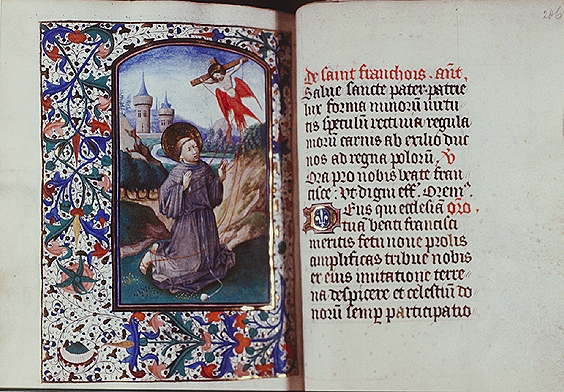 286
de saint franchois . añt .
Salue sancte pater patrie
lux forma minorū uirtu
tis speculū recti uia regula
morū carnis ab exilio duc
nos ad regna polorū . V
Ora pro nobis beate fran
cisce . Vt digni eff̄ . Orem⁹
Deus qui ecclesiā oro
tua beati francisci
meritis fetu noue prolis
amplificas tribue nobis
ex eius imitatione terre
na despicere et celestiū do
norū semp participatio